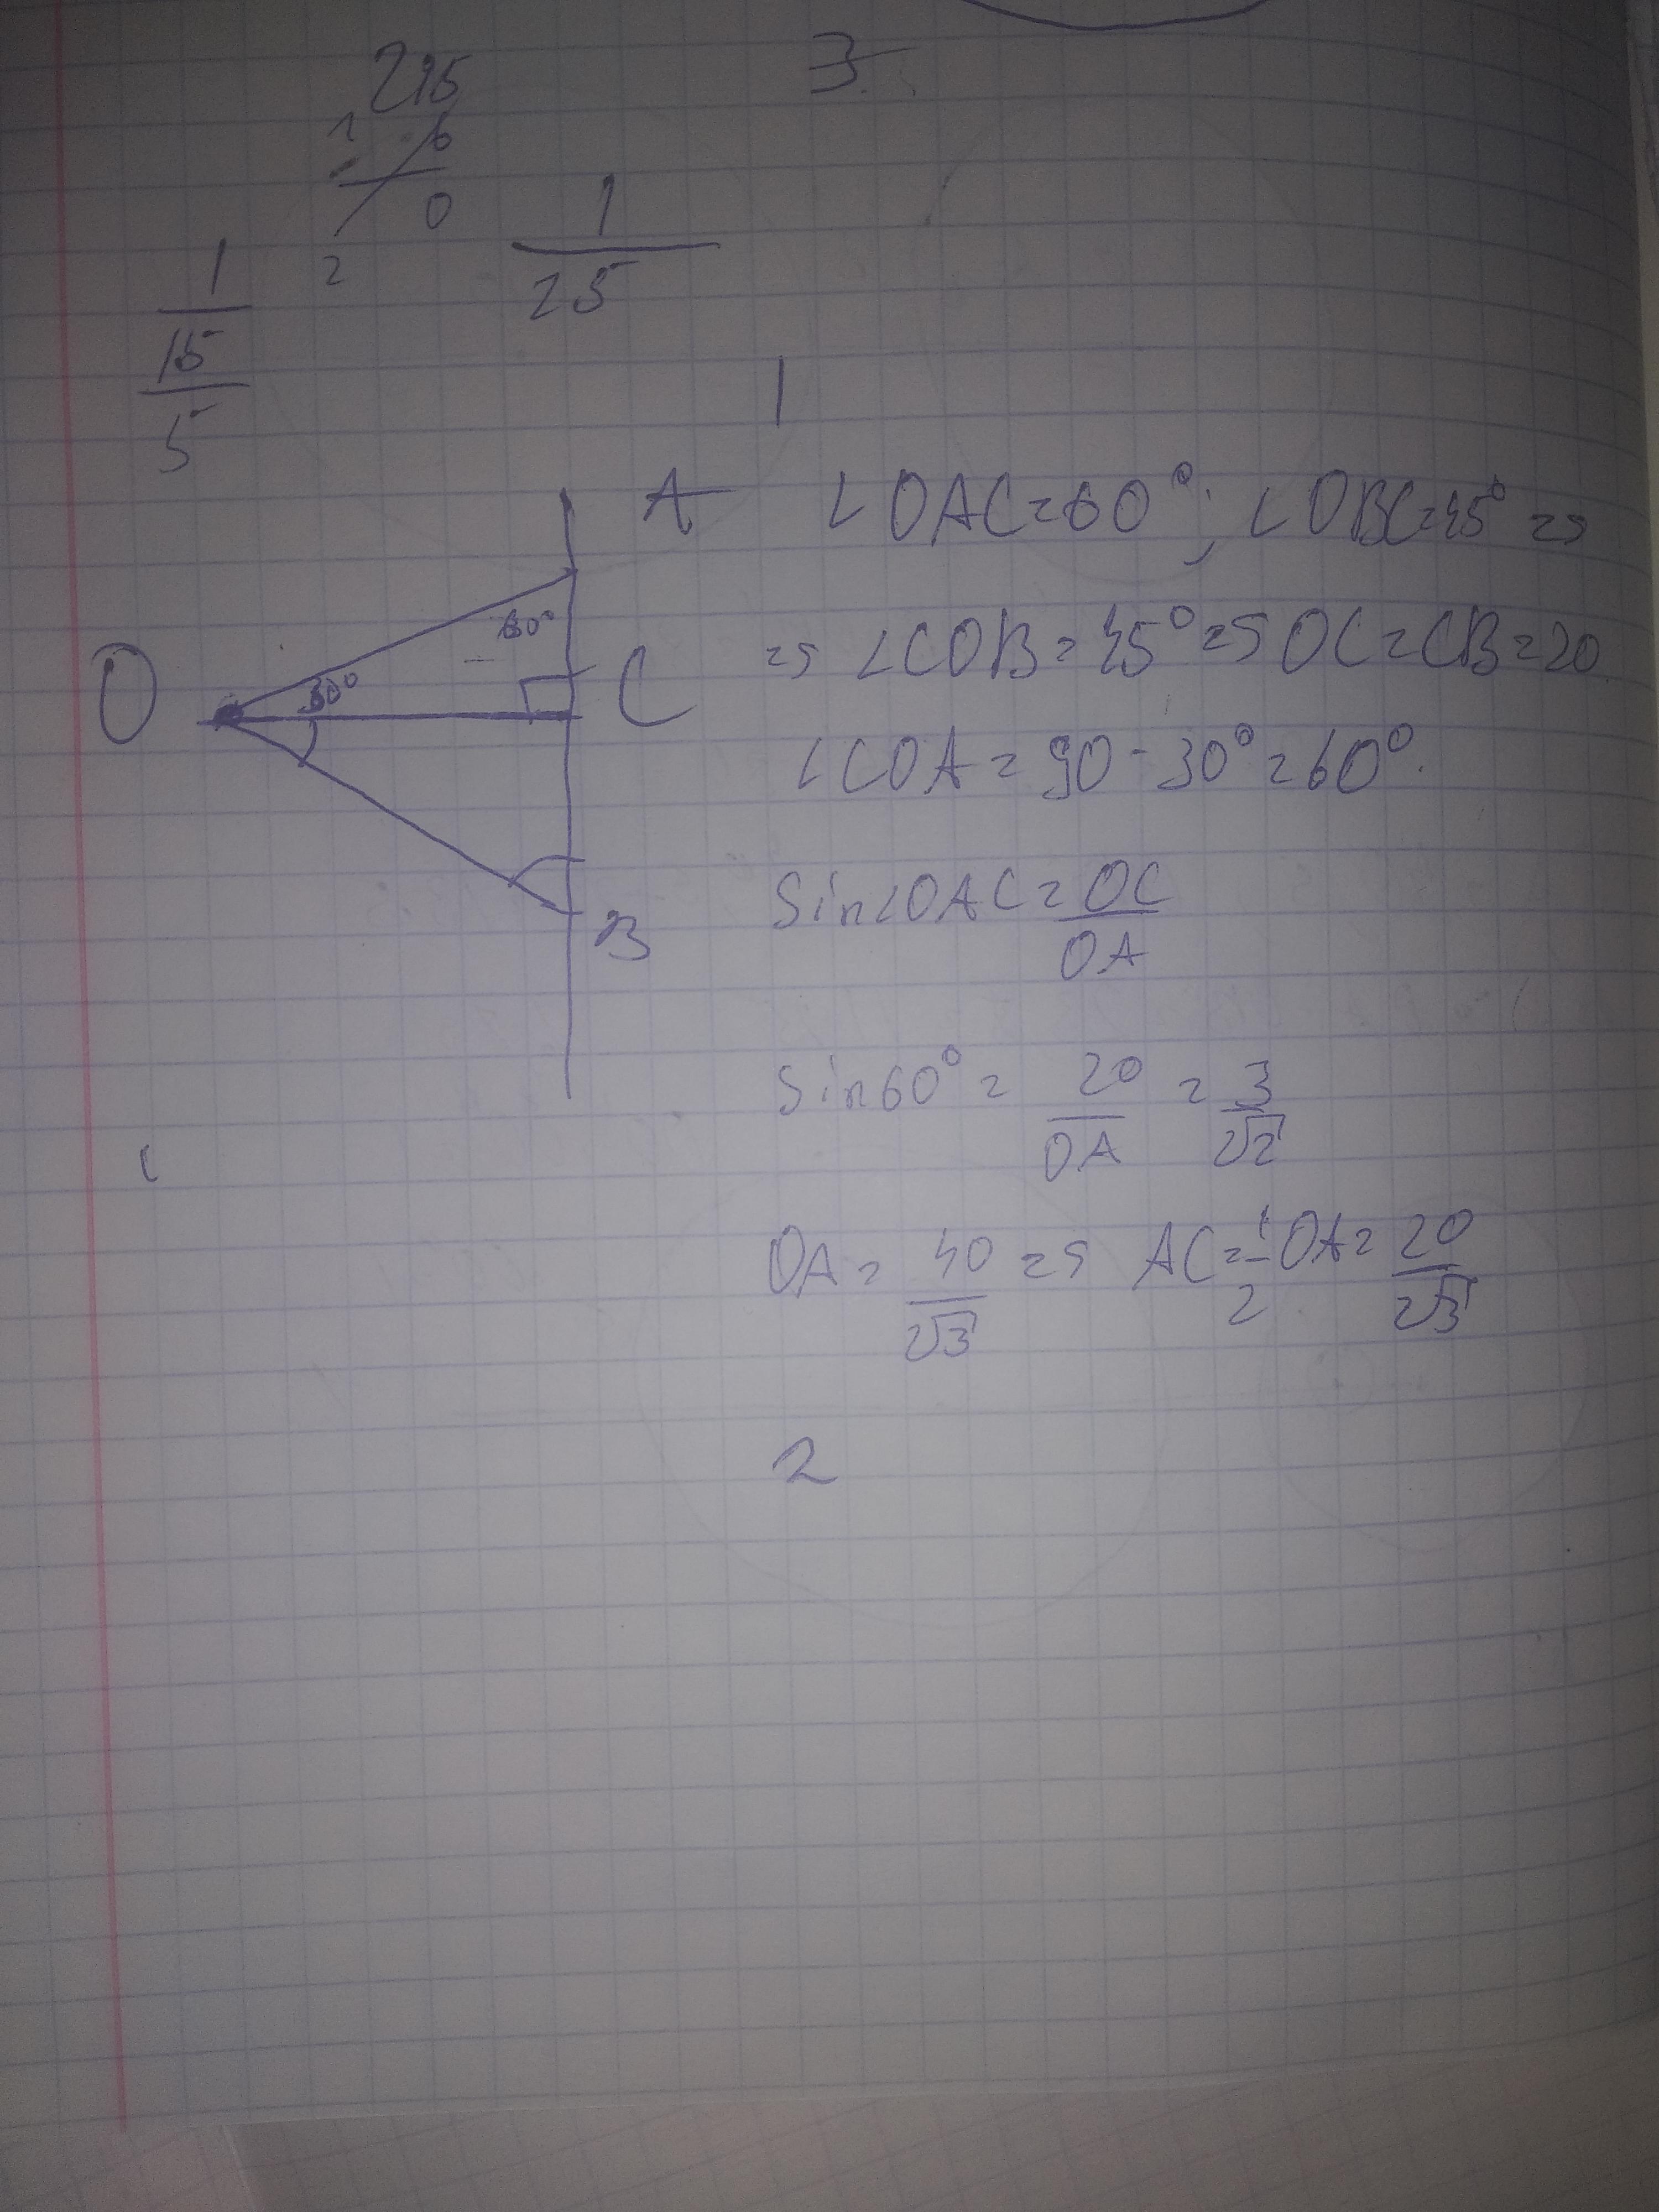 215
3
1 6
0
2
1
25
1
15
5
1
A
∠OAC=60°; ∠OBC=45° =>
60°
O
30°
C
=> ∠COB=45° => OC=CB=20
∠COA=90-30°=60°.
B
Sin∠OAC=OC/OA
Sin60°= 20/OA = 3/√2
OA= 40/√3 => AC=1/2 OA= 20/√3
2